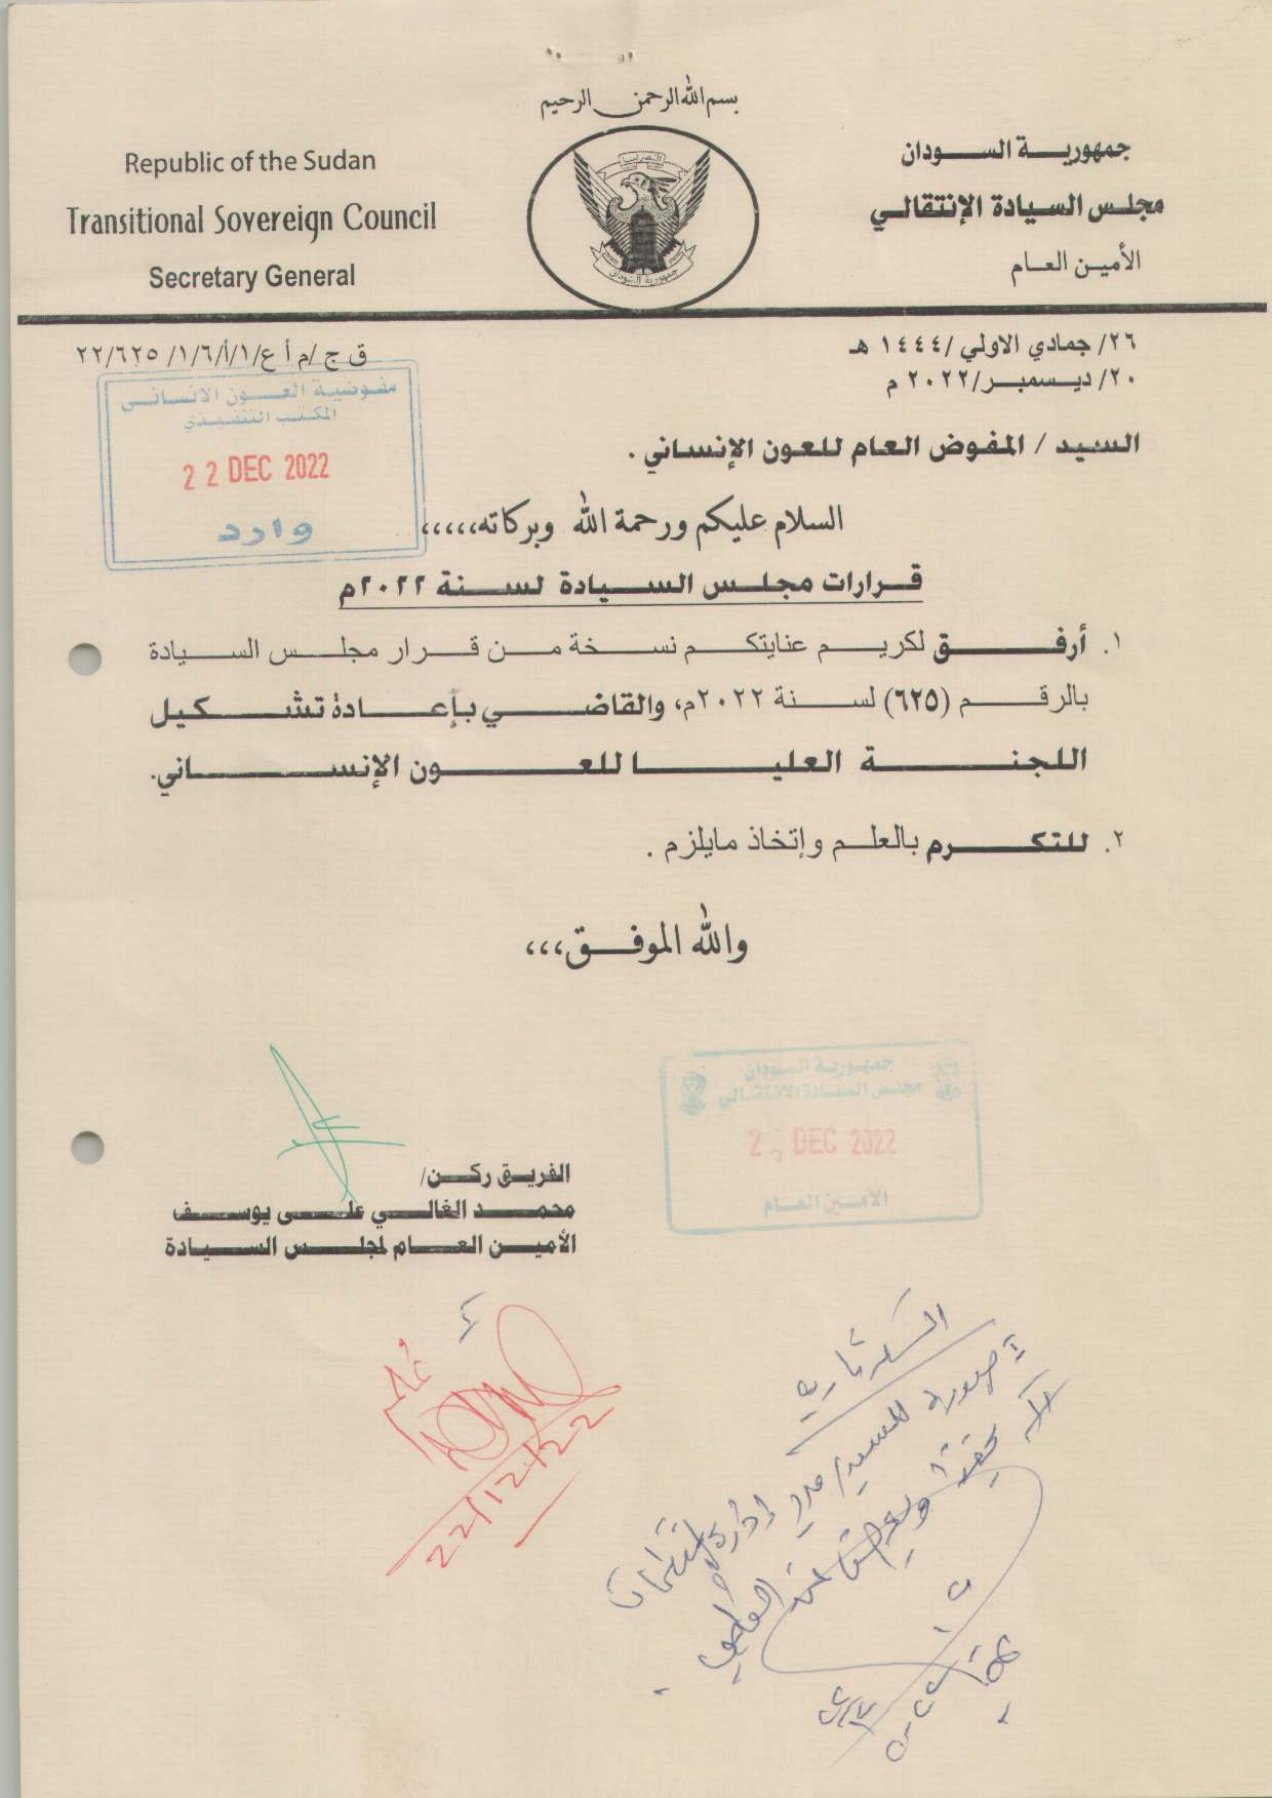 بسم الله الرحمن الرحيم
جمهورية السودان
مجلس السيادة الإنتقالي
الأمين العام
Republic of the Sudan
Transitional Sovereign Council
Secretary General
جمهورية السودان
٢٦/ جمادي الاولي /١٤٤٤ هـ
٢٠/ ديسمبر/٢٠٢٢ م
ق ج/م أ ع/١/أ/١/٦/ ٢٢/٦٢٥
مفوضية العون الانساني
المكتب التنفيذي
22 DEC 2022
وارد
السيد / المفوض العام للعون الإنساني .
السلام عليكم ورحمة الله وبركاته،،،،،
قرارات مجلس السيادة لسنة ٢٠٢٢م
١. أرفق لكريم عنايتكم نسخة من قرار مجلس السيادة
بالرقم (٦٢٥) لسنة ٢٠٢٢م، والقاضي بإعادة تشكيل
اللجنة العليا للعون الإنساني.
٢. للتكرم بالعلم وإتخاذ مايلزم .
والله الموفق،،،
جمهورية السودان
مجلس السيادة الانتقالي
DEC 2022
الأمين العام
الفريق ركن/
محمد الغالي على يوسف
الأمين العام لمجلس السيادة
22/12/22
السكرتارية
صورة للسيد/ مدير إدارة